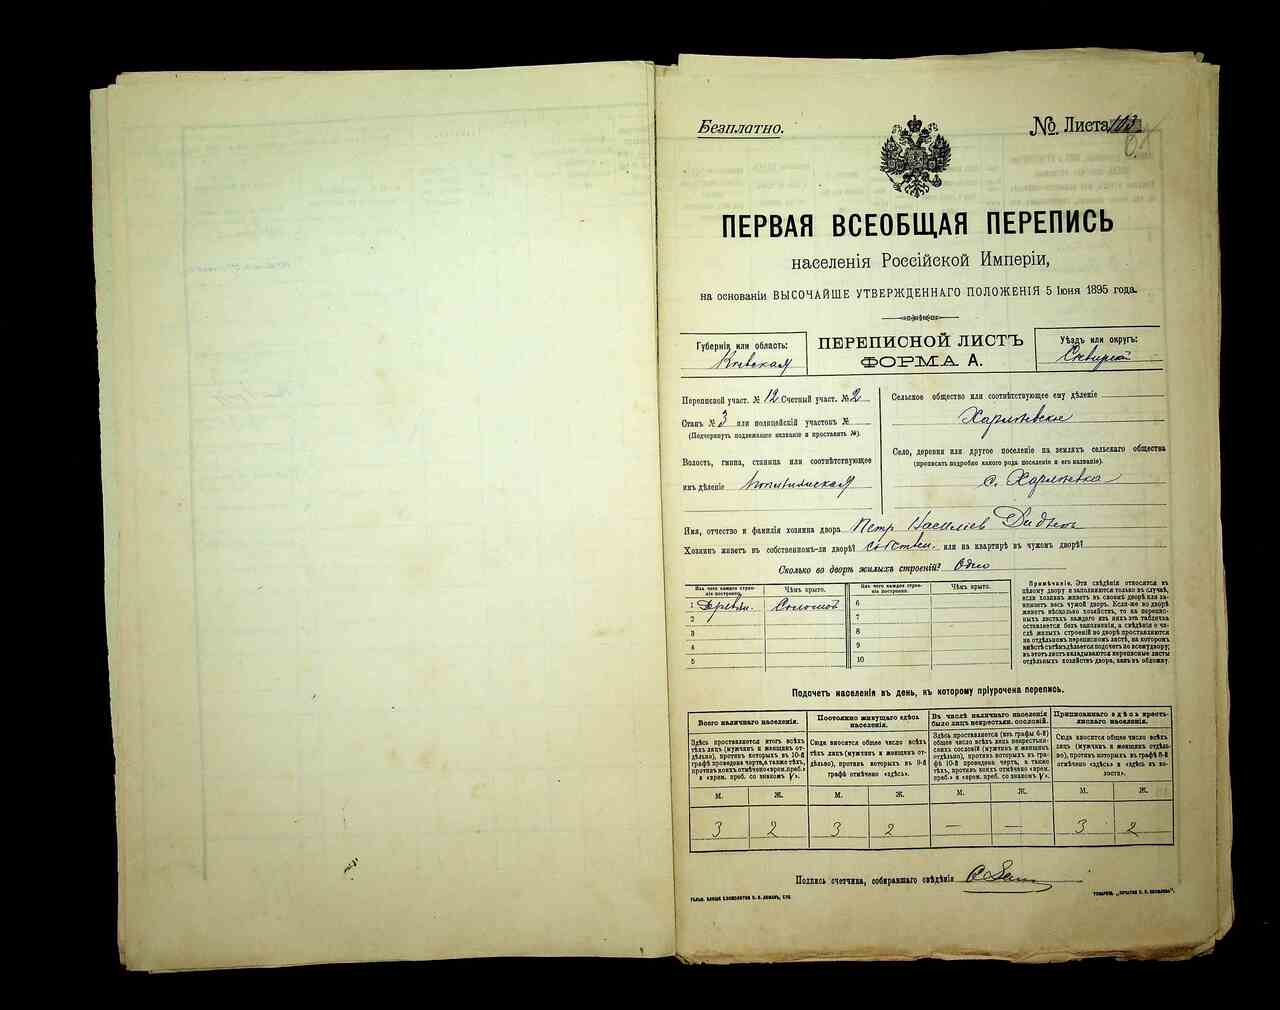 Безплатно.
№ Листа 103
ПЕРВАЯ ВСЕОБЩАЯ ПЕРЕПИСЬ
населенія Россійской Имперіи,
на основаніи ВЫСОЧАЙШЕ УТВЕРЖДЕННАГО ПОЛОЖЕНІЯ 5 Іюня 1895 года.
Губернія или область:
Кіевская
ПЕРЕПИСНОЙ ЛИСТЪ
ФОРМА А.
Уѣздъ или округъ:
Сквирскій
Переписной участ. № 12 Счетный участ. № 2
Станъ № 3 или полицейскій участокъ №
(Подчеркнуть подлежащее названіе и проставить №).
Волость, гмина, станица или соотвѣтствующее
имъ дѣленіе
Сельское общество или соотвѣтствующее ему дѣленіе
Харлѣевское
Село, деревня или другое поселеніе на земляхъ сельскаго общества
(прописать подробно какого рода поселеніе и его названіе).
с. Харлѣевка
Имя, отчество и фамилія хозяина двора Петр Василіев
Хозяинъ живетъ въ собственномъ-ли дворѣ? собствен. или на квартирѣ въ чужомъ дворѣ?
Сколько во дворѣ жилыхъ строеній? Одно
Изъ чего каждое строеніе построено. Чѣмъ крыто. Изъ чего каждое строеніе построено. Чѣмъ крыто.
1 Деревян. Соломой 6
2 7
3 8
4 9
5 10
Примѣчаніе. Эти свѣдѣнія относятся къ
цѣлому двору и заполняются только въ случаѣ,
если хозяинъ живетъ въ своемъ дворѣ или занимаетъ
весь чужой дворъ. Если-же во дворѣ
живетъ нѣсколько хозяйствъ, то на переписныхъ
листахъ каждаго изъ нихъ эта табличка
оставляется безъ заполненія, а свѣдѣнія о числѣ
жилыхъ строеній во дворѣ проставляются
на отдѣльномъ переписномъ листѣ, на которомъ
вмѣстѣ съ тѣмъ дѣлается подсчетъ по всему двору;
въ этотъ листъ вкладываются переписные листы
отдѣльныхъ хозяйствъ двора, какъ въ обложку.
Подсчетъ населенія въ день, къ которому пріурочена перепись.
Всего наличнаго населенія.
Здѣсь проставляется итогъ всѣхъ
тѣхъ лицъ (мужчинъ и женщинъ отдѣльно),
противъ которыхъ въ 10-й
графѣ проведена черта, а также тѣхъ,
противъ коихъ отмѣчено «врем. преб.»
и «врем. преб. со знакомъ V».
Постоянно живущаго здѣсь
населенія.
Сюда вносится общее число всѣхъ
тѣхъ лицъ (мужчинъ и женщинъ отдѣльно),
противъ которыхъ въ 9-й
графѣ отмѣчено «здѣсь».
Въ числѣ наличнаго населенія
было лицъ некрестьян. сословій.
Здѣсь проставляется (изъ графы 6-й)
общее число всѣхъ лицъ некрестьянскихъ
сословій (мужчинъ и женщинъ
отдѣльно), противъ которыхъ въ графѣ
10-й проведена черта, а также
тѣхъ, противъ коихъ отмѣчено «врем.
преб.» и «врем. преб. со знакомъ V».
Приписаннаго здѣсь крестьянскаго
населенія.
Сюда вносится общее число всѣхъ
лицъ (мужчинъ и женщинъ отдѣльно),
противъ которыхъ въ графѣ 8-й
отмѣчено «здѣсь» и «здѣсь въ волости».
М. Ж. М. Ж. М. Ж. М. Ж.
3 2 3 2 — — 3 2
Подпись счетчика, собиравшаго свѣдѣнія